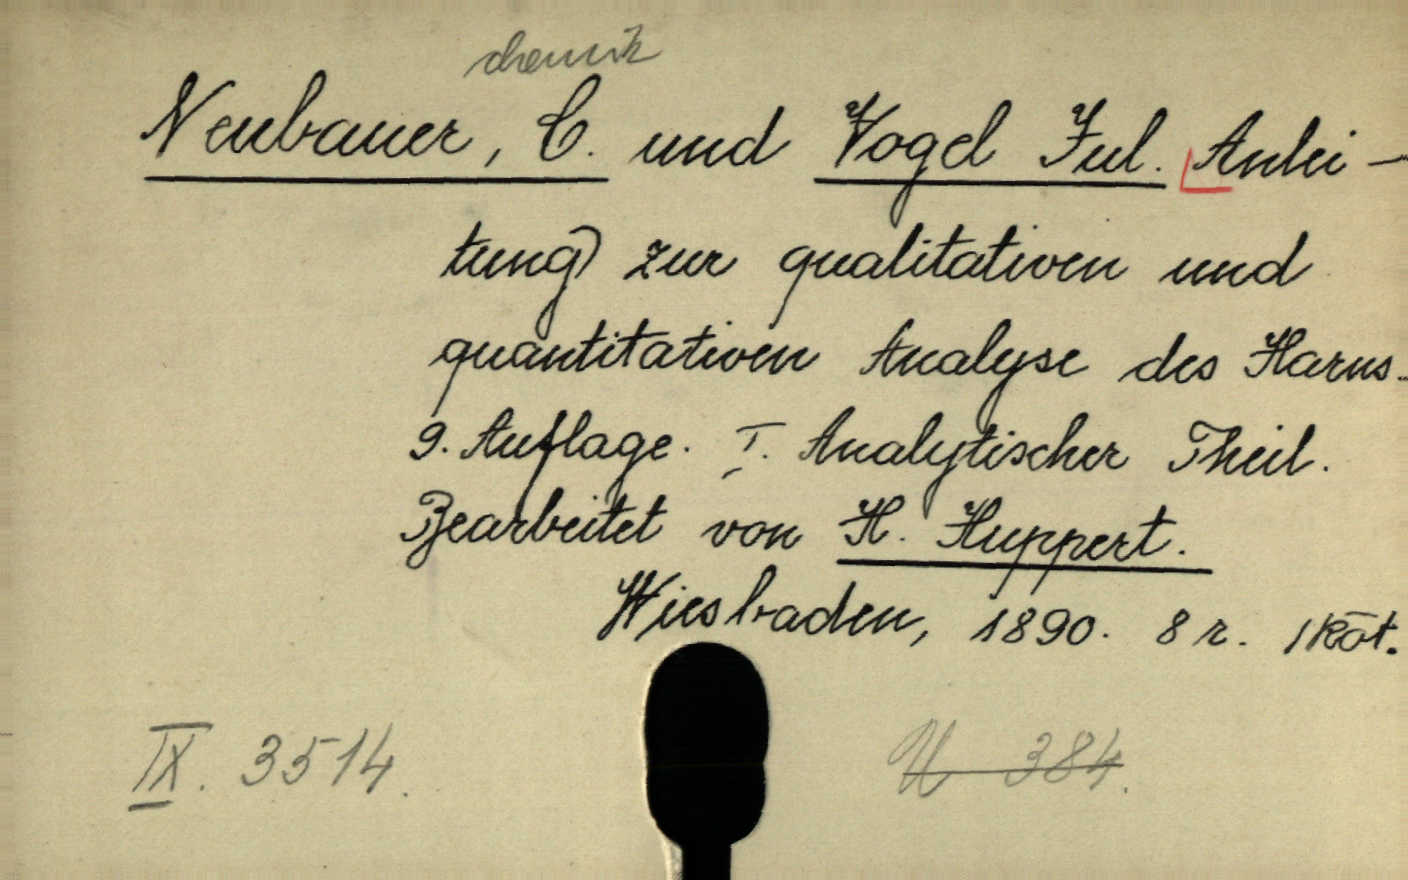 chemik
Neubauer, C. und Vogel Jul. Anlei-
tung) zur qualitativen und
quantitativen Analyse des Harns.
9. Auflage. I. Analytischer Theil.
Bearbeitet von H. Huppert.
Wiesbaden, 1890. 8 r. 1 köt.
IX. 3514.
U 384.